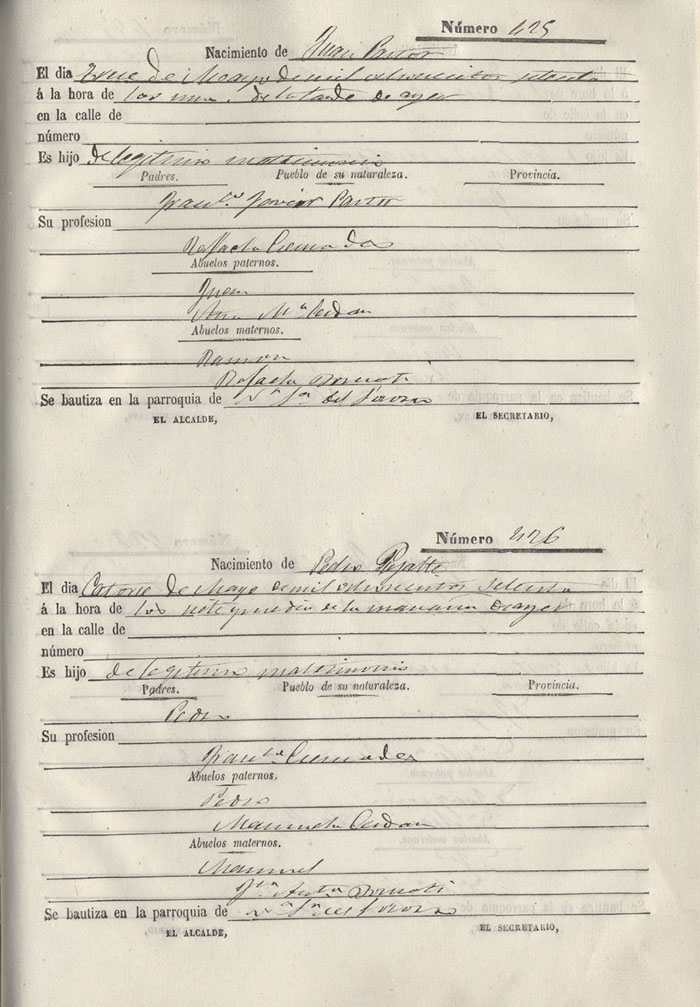 Número 425
Nacimiento de Juan Pastor
El dia Trece de Mayo de mil ochocientos setenta
á la hora de las una de la tarde de ayer
en la calle de
número
Es hijo de legitimo matrimonio
Padres. Pueblo de su naturaleza. Provincia.
Fran.co Javier Pastor
Su profesion
Rafaela Cremades
Abuelos paternos.
Juan
Ana M.a Cerdan
Abuelos maternos.
Ramon
Rafaela
Se bautiza en la parroquia de N.a S.a del Socorro
EL ALCALDE, EL SECRETARIO,
Número 426
Nacimiento de Pedro
El dia Catorce de Mayo de mil ochocientos setenta
á la hora de las siete y media de la mañana de ayer
en la calle de
número
Es hijo de legitimo matrimonio
Padres. Pueblo de su naturaleza. Provincia.
Pedro
Su profesion
Fran.ca Cremades
Abuelos paternos.
Pedro
Manuela Cerdan
Abuelos maternos.
Manuel
Se bautiza en la parroquia de N.a S.a del Socorro
EL ALCALDE, EL SECRETARIO,